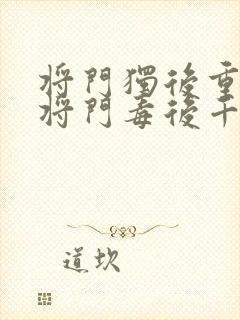 將門獨後重
將門毒後千
道坎